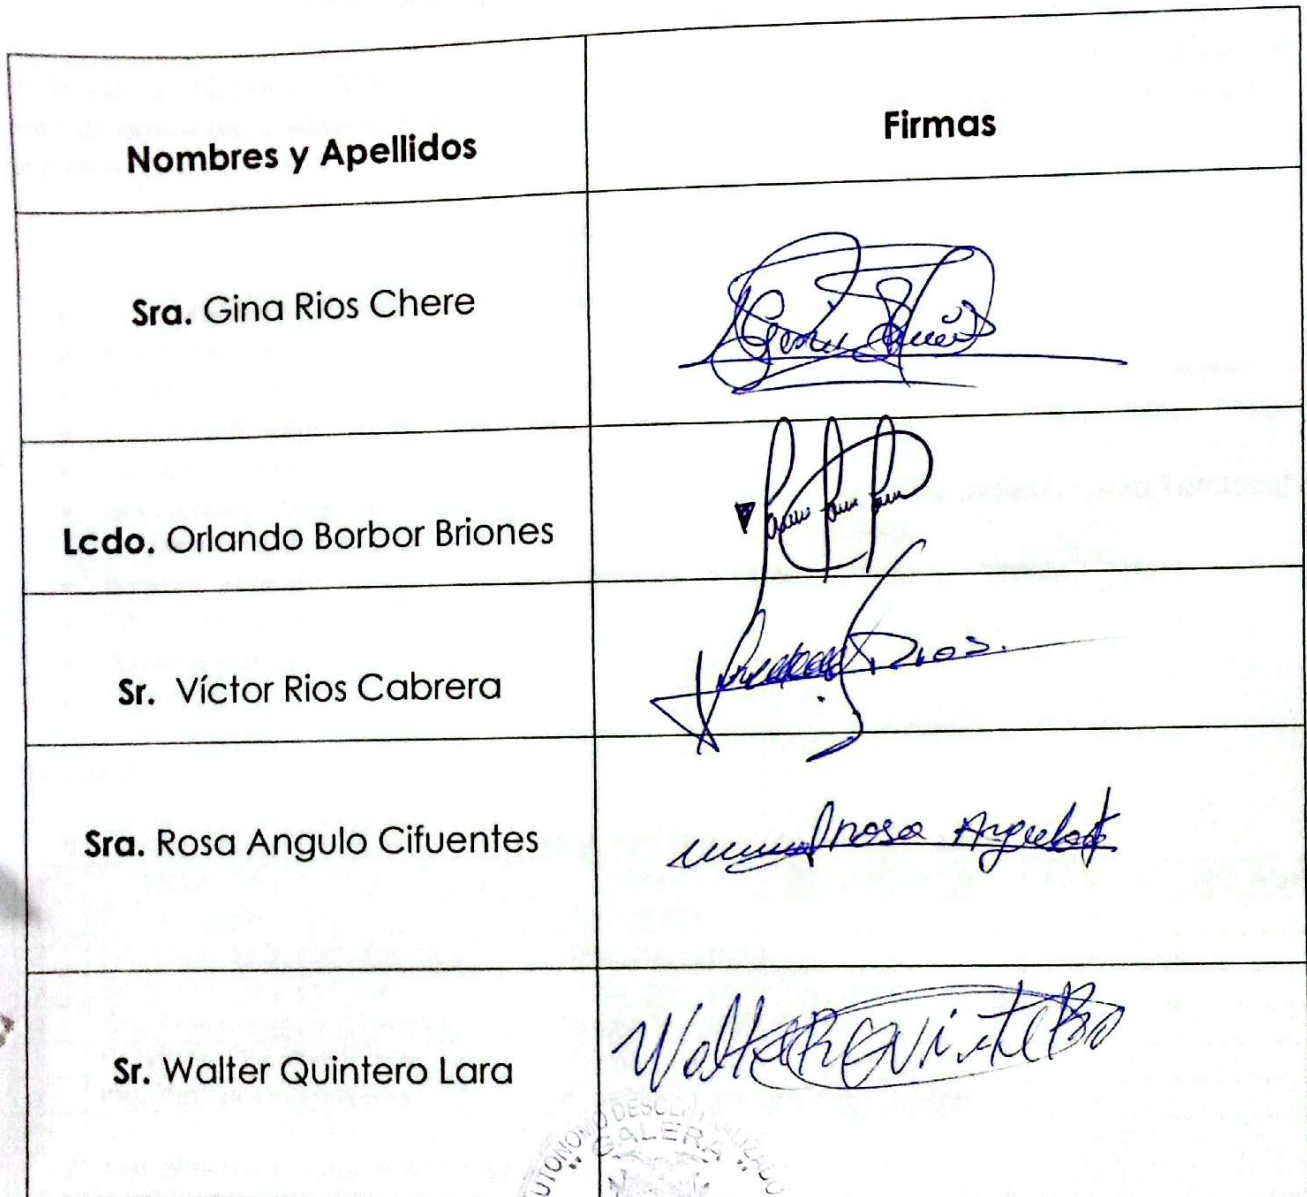 Nombres y Apellidos Firmas
Sra. Gina Rios Chere
Lcdo. Orlando Borbor Briones
Sr. Víctor Rios Cabrera Rios.
Sra. Rosa Angulo Cifuentes Rosa Angulo
Sr. Walter Quintero Lara WalteR QuinteRo
GALERA